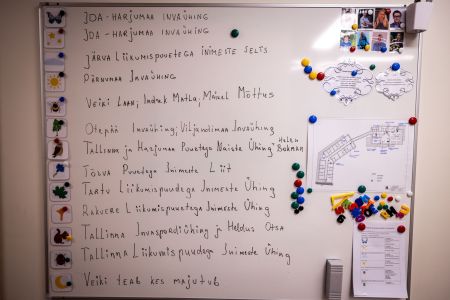 IDA-HARJUMAA INVAÜHING
IDA-HARJUMAA INVAÜHING
JÄRVA LIIKUMISPUUETEGA INIMESTE SELTS
PÄRNUMAA INVAÜHING
VEIKI LAAN; INDREK MATLA; MAIKEL MÕTTUS
OTEPÄÄ INVAÜHING; VILJANDIMAA INVAÜHING
TALLINNA JA HARJUMAA PUUETEGA NAISTE ÜHING
HELEN BOKMAN
TÕRVA PUUETEGA INIMESTE LIIT
TARTU LIIKUMISPUUDEGA INIMESTE ÜHING
RAKVERE LIIKUMISPUUETEGA INIMESTE ÜHING
TALLINNA INVASPORDIÜHING JA HELDUS OTSA
TALLINNA LIIKUMISPUUDEGA INIMESTE ÜHING
VEIKI TEAB KES MAJUTUB